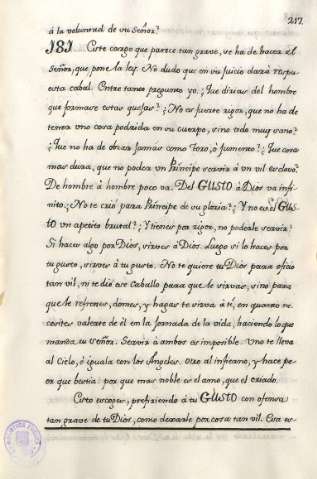 217
à la voluntad de vu Señor?
181. Este cargo que parece tan grave, ve ha de hacer el
Señor, que pone la ley. No dudo que en vu Juicio dará respu-
esta cabal. Entre tanto pregunto yo. ¿Que dirias del hombre
que formare estas quejas? ¿No es fuerte rigor, que no ha de
tener una cosa podrida en vu cuerpo, vino todo muy vano?
¿Que no ha de obrar Jamás como Toro, ó Jumento? ¿Que cosa
mas dura, que no poder un Principe servir á un vil esclavo?
De hombre à hombre poco va. Del GUSTO à Dios va infi-
nito. ¿No te crió para Principe de vu gloria? ¿Y no es el GUS-
TO un apetito brutal? ¿Y tienes por rigor, no poderle servir?
Si haces algo por Dios, sirves à Dios. Luego si lo haces por
tu gusto, sirves à tu gusto. No te quiere tu Dios para oficio
tan vil, ni te dió ese Caballo para que le sirvas, vino para
que le refrenes, domes, y hagas te sirva à ti, en quanto ne-
cesites valerte de él en la Jornada de la vida, haciendo lo que
manda tu Señor. Servir à ambos es imposible. Uno te lleva
al Cielo, ó iguala con los Angeles. Otro al infierno, y hace pe-
or que bestia: por que mas noble es el amo, que el criado.
Esto escoges, prefiriendo à tu GUSTO con ofensa
tan grave de tu Dios, como dexarle por cosa tan vil. Esa es-